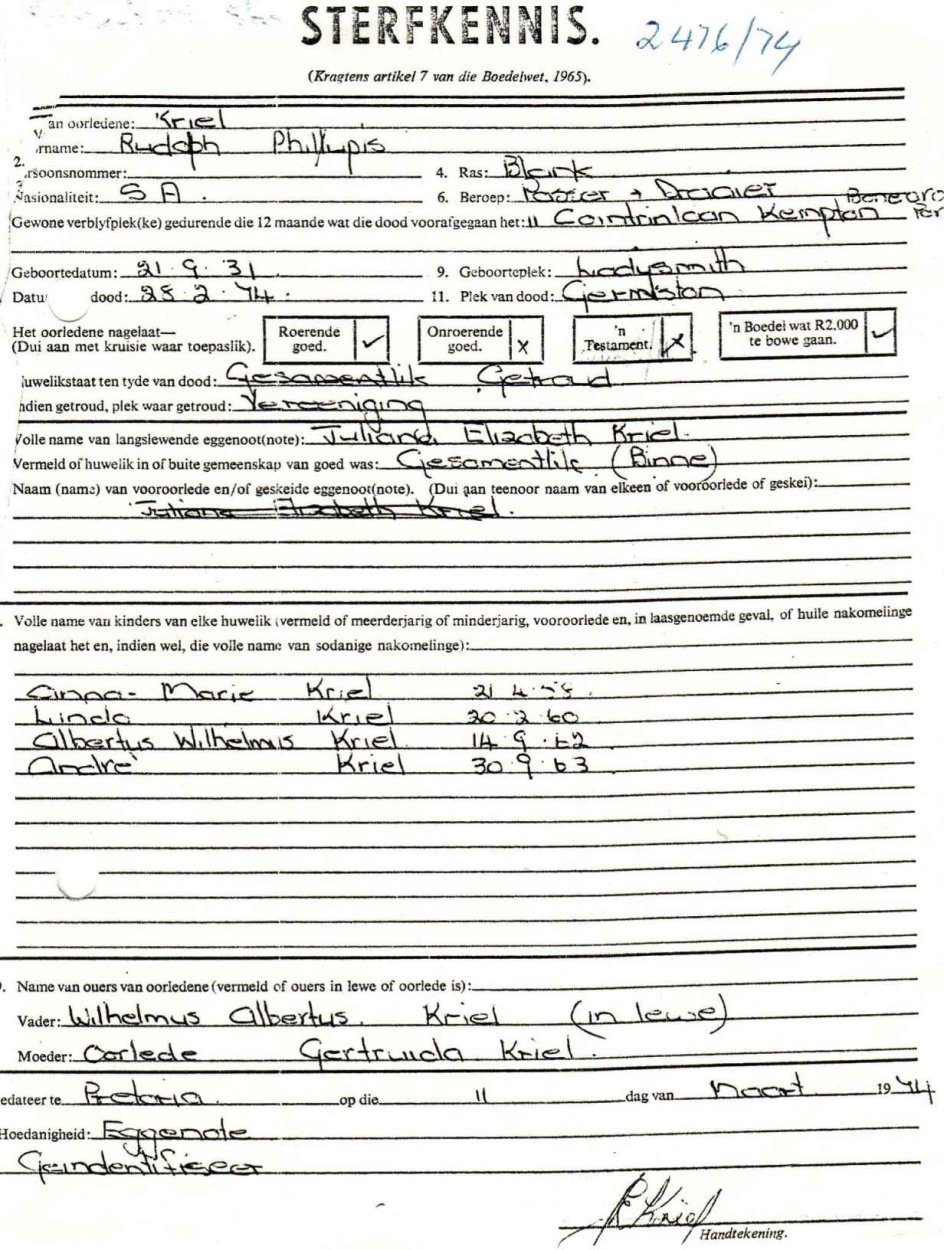 STERFKENNIS. 2476/74
(Kragtens artikel 7 van die Boedelwet, 1965).
an oorledene: Kriel
rname: Rudolph Phillupis
2.
rsoonsnommer: 4. Ras: Blank
Nasionaliteit: S A. 6. Beroep: Passer + Draaier
Gewone verblyfplek(ke) gedurende die 12 maande wat die dood voorafgegaan het: 11 Kempton
Geboortedatum: 21.9.31 9. Geboorteplek: Ladysmith
Datu dood: 28.2.74. 11. Plek van dood: Germiston
Het oorledene nagelaat—
(Dui aan met kruisie waar toepaslik).
Roerende goed. ✓ Onroerende goed. x 'n Testament. x 'n Boedel wat R2,000 te bowe gaan. ✓
uwelikstaat ten tyde van dood: Gesamentlik Getroud
ndien getroud, plek waar getroud: Vereeniging
Volle name van langslewende eggenoot(note): Juliana Elizabeth Kriel.
Vermeld of huwelik in of buite gemeenskap van goed was: Gesamentlik (Binne)
Naam (name) van vooroorlede en/of geskeide eggenoot(note). (Dui aan teenoor naam van elkeen of vooroorlede of geskei):
Juliana Elizabeth Kriel.
Volle name van kinders van elke huwelik (vermeld of meerderjarig of minderjarig, vooroorlede en, in laasgenoemde geval, of hulle nakomelinge
nagelaat het en, indien wel, die volle name van sodanige nakomelinge):
Anna-Marie Kriel 21.4.58.
Linda Kriel 20.2.60
Albertus Wilhelmus Kriel 14.9.62
Andrè Kriel 30.9.63
9. Name van ouers van oorledene (vermeld of ouers in lewe of oorlede is):
Vader: Wilhelmus Albertus. Kriel (in lewe)
Moeder: Oorlede Gertruida Kriel.
edateer te Pretoria. op die 11 dag van Maart 1974
Hoedanigheid: Eggenote
Geindentifiseer
Kriel
Handtekening.